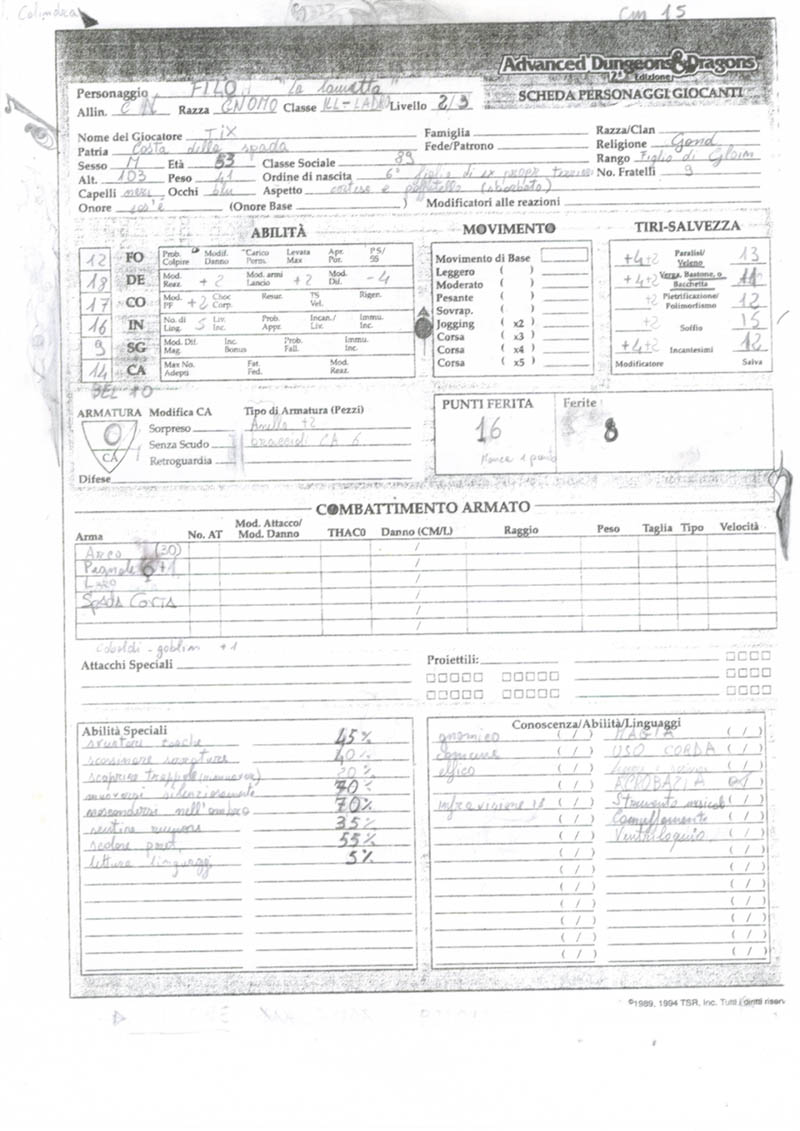 Calimdea
CM 15
Advanced Dungeons & Dragons
2ª Edizione
SCHEDA PERSONAGGI GIOCANTI
Personaggio FILO "la lametta"
Allin. C N Razza GNOMO Classe ILL-LADRO Livello 2/3
Nome del Giocatore TIX Famiglia Razza/Clan
Patria Costa della spada Fede/Patrono Religione Gond
Sesso M Età 53 Classe Sociale 89 Rango Figlio di Gloim
Alt. 103 Peso 41 Ordine di nascita 6° figlio di ex propr. No. Fratelli 9
Capelli neri Occhi blu Aspetto cortese e (sbarbato)
Onore cos'è (Onore Base ) Modificatori alle reazioni
ABILITÀ
12 FO Prob. Colpire Modif. Danno Carico Perm. Levata Max Apr. Por. PS/SS
18 DE Mod. Reaz. +2 Mod. armi Lancio +2 Mod. Dif. -4
17 CO Mod. PF +2 Choc Corp. Resur. TS Vel. Rigen.
16 IN No. di Ling. 5 Liv. Inc. Prob. Appr. Incan./Liv. Immu. Inc.
9 SG Mod. Dif. Mag. Inc. Bonus Prob. Fall. Immu. Inc.
14 CA Max No. Adepti Fat. Fed. Mod. Reaz.
BEL 10
MOVIMENTO
Movimento di Base
Leggero ( )
Moderato ( )
Pesante ( )
Sovrap. ( )
Jogging ( x2 )
Corsa ( x3 )
Corsa ( x4 )
Corsa ( x5 )
TIRI-SALVEZZA
+4+2 Paralisi/Veleno 13
+4+2 Verga, Bastone, o Bacchetta 11
+2 Pietrificazione/Polimorfismo 12
+2 Soffio 15
+4+2 Incantesimi 12
Modificatore Salva
ARMATURA Modifica CA Tipo di Armatura (Pezzi)
0 Sorpreso Anello +2
CA Senza Scudo bracciali CA 6
Retroguardia
Difese
PUNTI FERITA
16
Manca 1 punto
Ferite
8
COMBATTIMENTO ARMATO
Arma No. AT Mod. Attacco/Mod. Danno THAC0 Danno (CM/L) Raggio Peso Taglia Tipo Velocità
Arco (30) /
Pugnale +1 /
/
Spada Corta /
/
/
Coboldi - goblim +1
Attacchi Speciali
Proiettili:
Abilità Speciali
svuotare tasche 45%
scassinare serrature 40%
scoprire trappole (rimuovere) 20%
muoversi silenziosamente 70%
nascondersi nell'ombra 70%
sentire rumori 35%
scalare pareti 55%
lettura linguaggi 5%
Conoscenza/Abilità/Linguaggi
gnomico ( / ) MAGIA ( / )
comune ( / ) USO CORDA ( / )
elfico ( / ) ( / )
( / ) ACROBAZIA ( / )
infravisione 18 ( / ) Strumento musicale ( / )
( / ) Camuffamento ( / )
( / ) Ventriloquio ( / )
( / ) ( / )
( / ) ( / )
( / ) ( / )
( / ) ( / )
( / ) ( / )
( / ) ( / )
©1989, 1994 TSR, Inc. Tutti i diritti riser